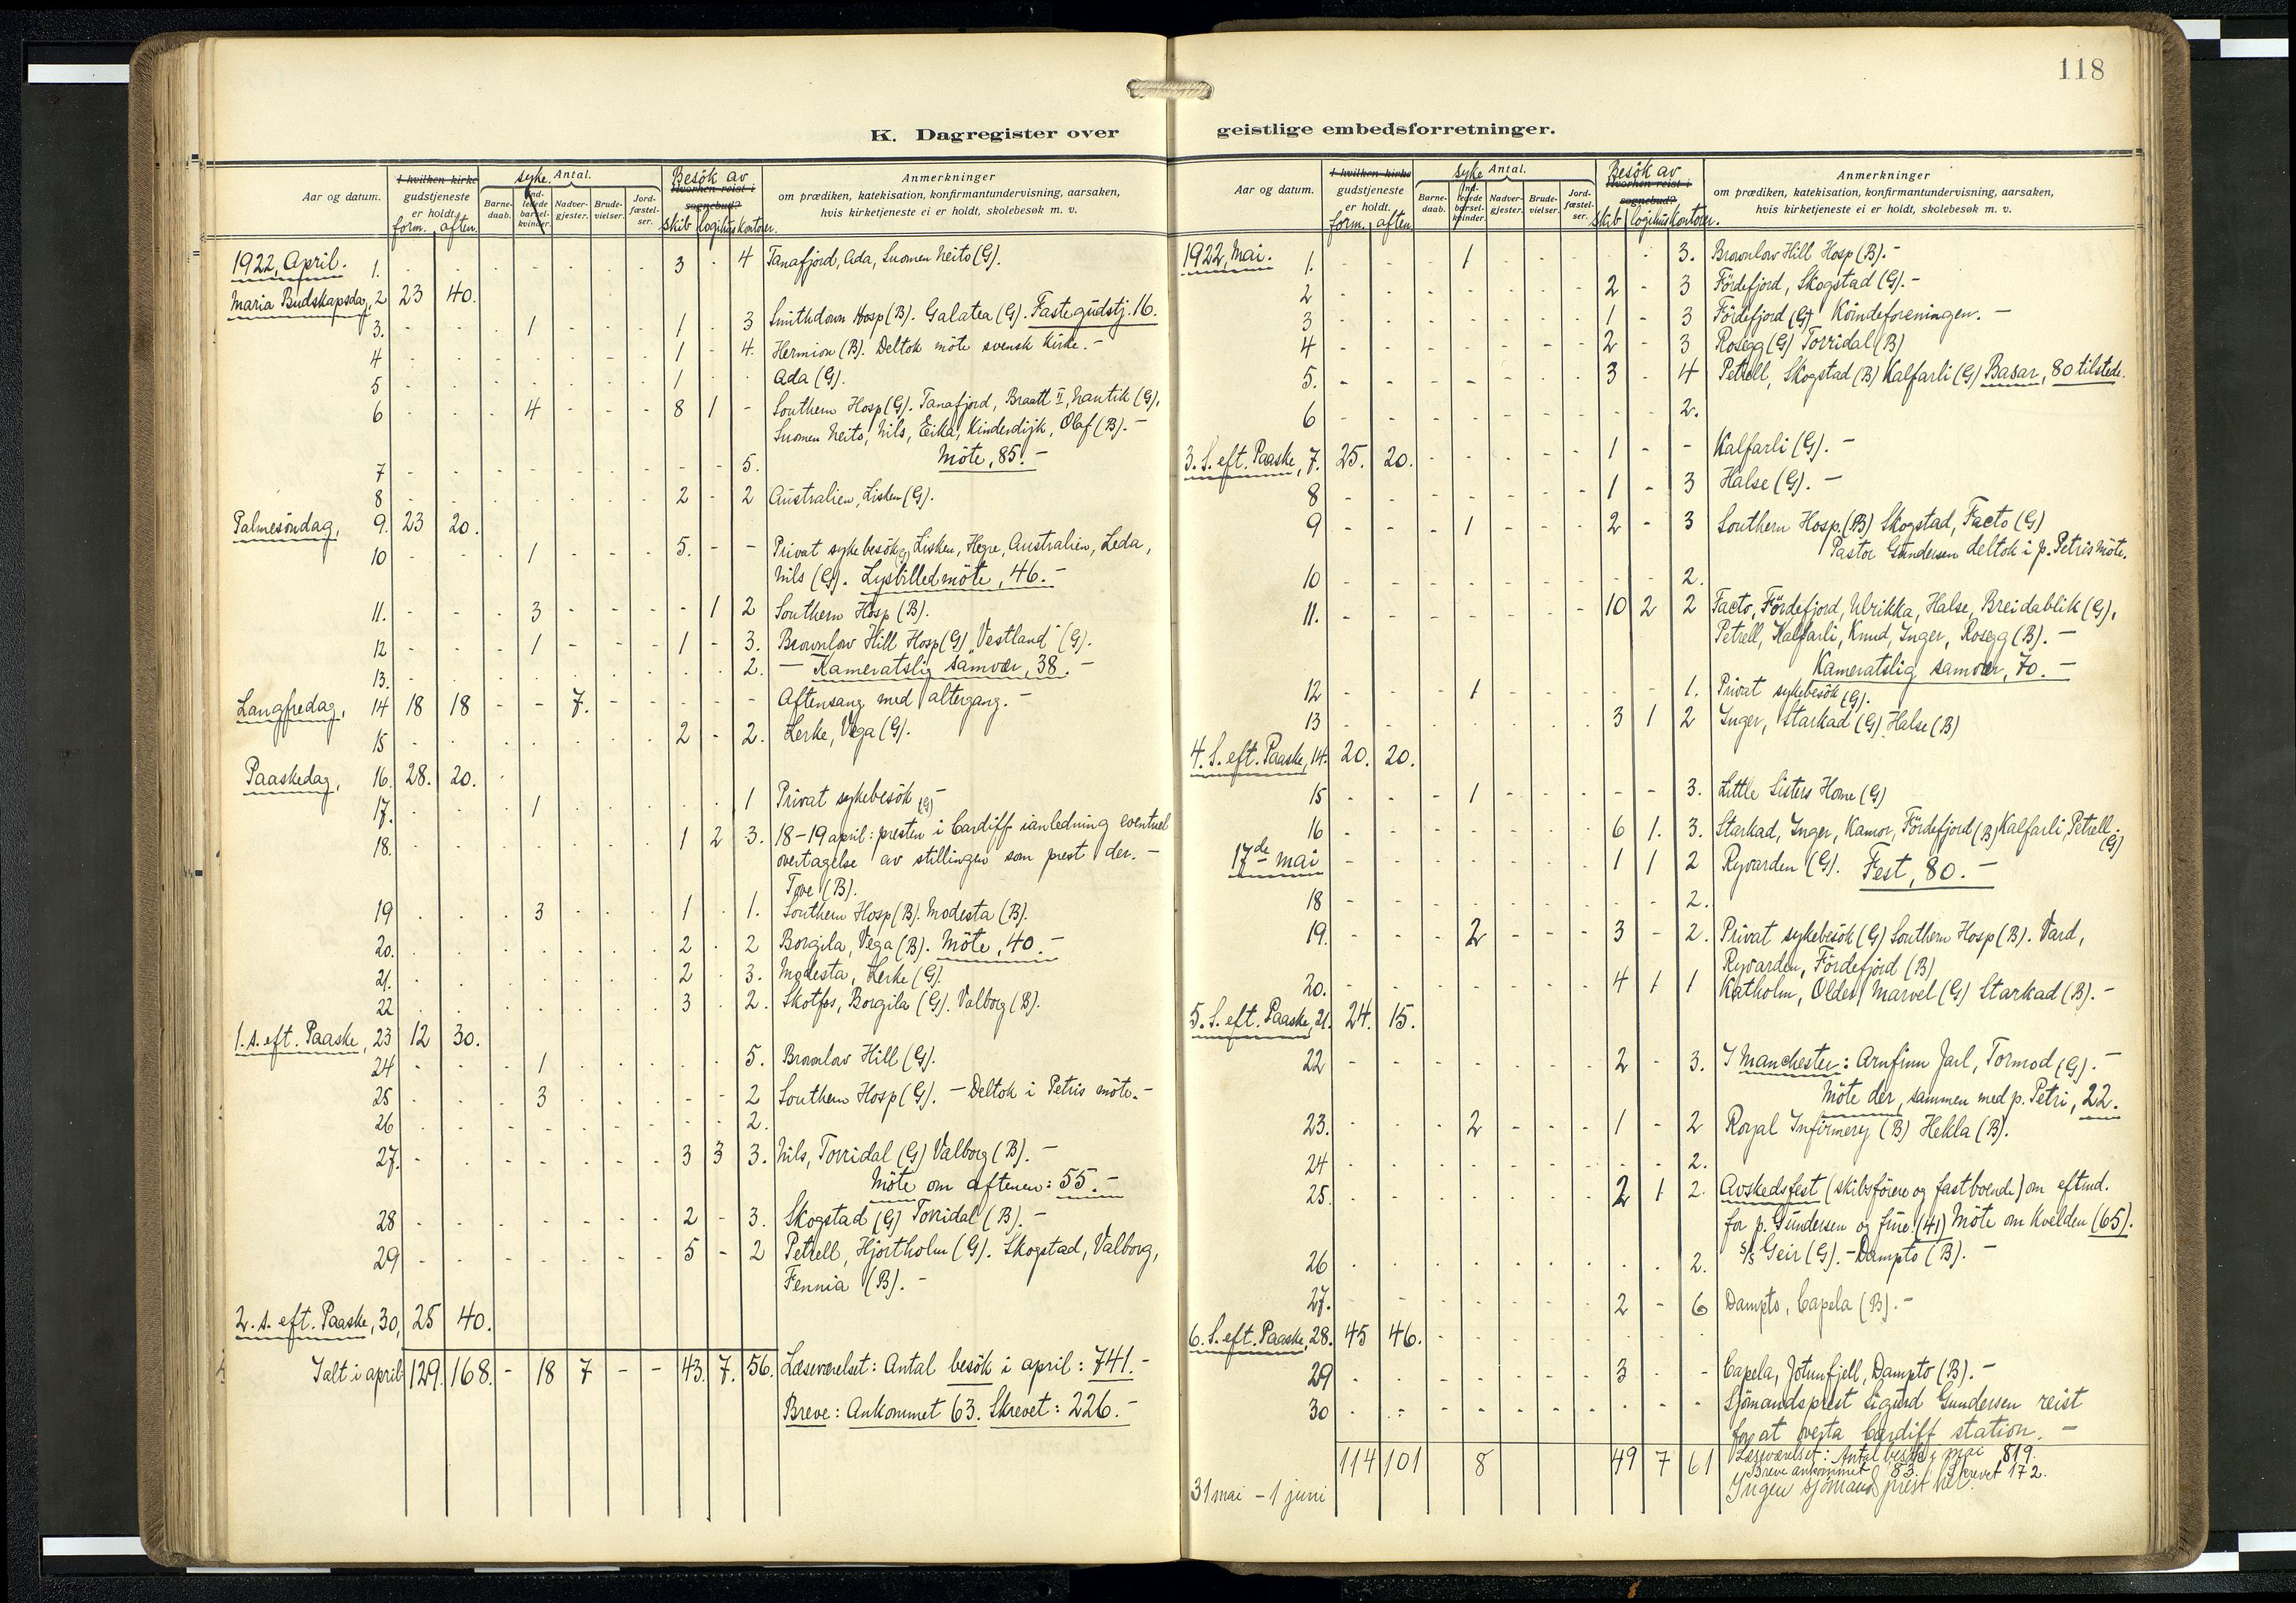 118
K. Dagregister over geistlige embedsforretninger.
Aar og datum. | I hvilken kirke gudstjeneste er holdt. form. aften. | syke. Antal. | Barne-daab. | Ind-ledede barsel-kvinder. | Nadver-gjester. | Brude-vielser. | Jord-fæstel-ser. | Besök av Hvorhen reist i sognebud? skib logihus kontorer. | Anmerkninger om prædiken, katekisation, konfirmantundervisning, aarsaken, hvis kirketjeneste ei er holdt, skolebesøk m. v.
1922, April. 1. - - - - - - - 3 - 4 Tanafjord, Ada, Suomen Neito (G).
Maria Budskapsdag, 2 23 40.
3. - - - 1 - - - 1 - 3 Smithdown Hosp (B). Galatea (G). Fastegudstj. 16.
4 - - - - - - - 1 - 4. Hermion (B). Deltok möte svensk kirke. -
5 - - - - - - - 1 - - Ada (G).
6 - - - 4 - - - 8 1 - Southern Hosp (G). Tanafjord, Braatt II, Nautik (G),
Suomen Neito, Nils, Eika, Kinderdijk, Olaf (B). -
7 - - - - - - - - - 5. Möte, 85. -
8 - - - - - - - 2 - 2 Australien, Lisken (G).
Palmesöndag, 9. 23 20.
10 - - - 1 - - - 5. - - Privat sykebesök (G) Lisken, Hegre, Australien, Leda,
Nils (G). Lysbilledmöte, 46. -
11. - - - 3 - - - - 1 2 Southern Hosp (B).
12 - - - 1 - - - 1 - 3. Brownlow Hill Hosp (G) "Vestland" (G).
13. - - - - - - - - - 2. - Kameratslig samvær, 38. -
Langfredag, 14 18 18 - - 7. - - - - - Aftensang med altergang. -
15 - - - - - - - 2 - 2. Lerke, Vega (G).
Paaskedag, 16. 28. 20.
17. - - - 1 - - - - - 1 Privat sykebesök (G) -
18. - - - - - - - 1 2 3. 18-19 april: presten i Cardiff i anledning eventuel
overtagelse av stillingen som prest der. -
Tove (B).
19 - - - 3 - - - 1 - 1. Southern Hosp (B). Modesta (B).
20. - - - - - - - 2 - 2 Borgila, Vega (B). Möte, 40. -
21. - - - - - - - 2 - 3. Modesta, Lerke (G).
22 - - - - - - - 3 - 2. Skotfos, Borgila (G). Valborg (B).
1. s. eft. Paaske, 23 12 30.
24 - - - 1 - - - - - 5. Brownlow Hill (G).
25 - - - 3 - - - - - 2 Southern Hosp (G). - Deltok i Petris möte. -
26 - - - - - - - - - 2.
27. - - - - - - - 3 3 3. Nils, Torridal (G) Valborg (B). -
Möte om aftenen: 55. -
28 - - - - - - - 2 - 3. Skogstad (G) Torridal (B). -
29 - - - - - - - 5 - 2 Petrell, Hjortholm (G). Skogstad, Valborg,
Fennia (B). -
2. s. eft. Paaske, 30, 25 40.
Ialt i april: 129. 168. - 18 7 - - 43. 7. 56. Læseværelset: Antal besök i april: 741. -
Breve: Ankommet 63. Skrevet: 226. -
Aar og datum. | I hvilken kirke gudstjeneste er holdt. form. aften. | syke Antal. | Barne-daab. | Ind-ledede barsel-kvinder. | Nadver-gjester. | Brude-vielser. | Jord-fæstel-ser. | Besök av Hvorhen reist i sognebud? skib logihus kontorer. | Anmerkninger om prædiken, katekisation, konfirmantundervisning, aarsaken, hvis kirketjeneste ei er holdt, skolebesøk m. v.
1922, Mai. 1. - - - 1 - - - - - 3. Brownlow Hill Hosp (B). -
2 - - - - - - - 2 - 3 Fördefjord, Skogstad (G). -
3 - - - - - - - 1 - 3 Fördefjord (G) Kvindeforeningen. -
4 - - - - - - - 2 - 3 Rosegg (G) Torridal (B)
5. - - - - - - - 3 - 4 Petrell, Skogstad (B) Kalfarli (G) Basar, 80 tilstede.
6 - - - - - - - - - 2.
3. S. eft. Paaske, 7. 25. 20. - - - - - 1 - - Kalfarli (G). -
8 - - - - - - - 1 - 3 Halse (G). -
9 - - - 1 - - - 2 - 3 Southern Hosp. (B) Skogstad, Facto (G)
Pastor Gundersen deltok i p. Petris möte.
10 - - - - - - - - - 2.
11. - - - - - - - 10 2 2 Facto, Fördefjord, Ulrikka, Halse, Breidablik (G),
Petrell, Kalfarli, Knud, Inger, Rosegg (B). -
Kameratslig samvær, 70. -
12 - - - 1 - - - - - 1. Privat sykebesök (G).
13 - - - - - - - 3 1 2 Inger, Starkad (G) Halse (B)
4. S. eft. Paaske, 14. 20. 20.
15 - - - 1 - - - - - 3. Little Sisters Home (G)
16 - - - - - - - 6 1. 3. Starkad, Inger, Kamor, Fördefjord (B) Kalfarli, Petrell (G)
17de mai - - - - - - - 1 1 2 Ryvarden (G). Fest, 80. -
18 - - - - - - - - - 2.
19. - - - 2 - - - 3 - 2. Privat sykebesök (G) Southern Hosp (B). Vard,
Ryvarden, Fördefjord (B)
20. - - - - - - - 4 1 1 Katholm, Olden, Marvel (G) Starkad (B). -
5. S. eft. Paaske, 21. 24. 15.
22 - - - - - - - 2 - 3. I Manchester: Arnfinn Jarl, Tormod (G). -
Möte der, sammen med p. Petri, 22.
23. - - - 2 - - - 1 - 2 Royal Infirmery (B) Hekla (B).
24 - - - - - - - - - 2.
25. - - - - - - - 2 1 2. Avskedsfest (skibsförere og fastboende) om eftmd.
for p. Gundersen og frue. (41) Möte om kvelden (65).
26 - - - - - - - - - 2. s/s Geir (G). - Dampto (B). -
27. - - - - - - - 2 - 6 Dampto, Capela (B). -
6. S. eft. Paaske, 28. 45 46. - - - - - - - -
29 - - - - - - - 3 - - Capela, Jotunfjell, Dampto (B). -
30 - - - - - - - - - - Sjömandsprest Sigurd Gundersen reist
for at overta Cardiff station. -
114 101 8 49 7 61 Læseværelset: Antal besök i mai 819.
Breve ankommet 83. Skrevet 172.
31 mai - 1 juni Ingen sjömandsprest her.